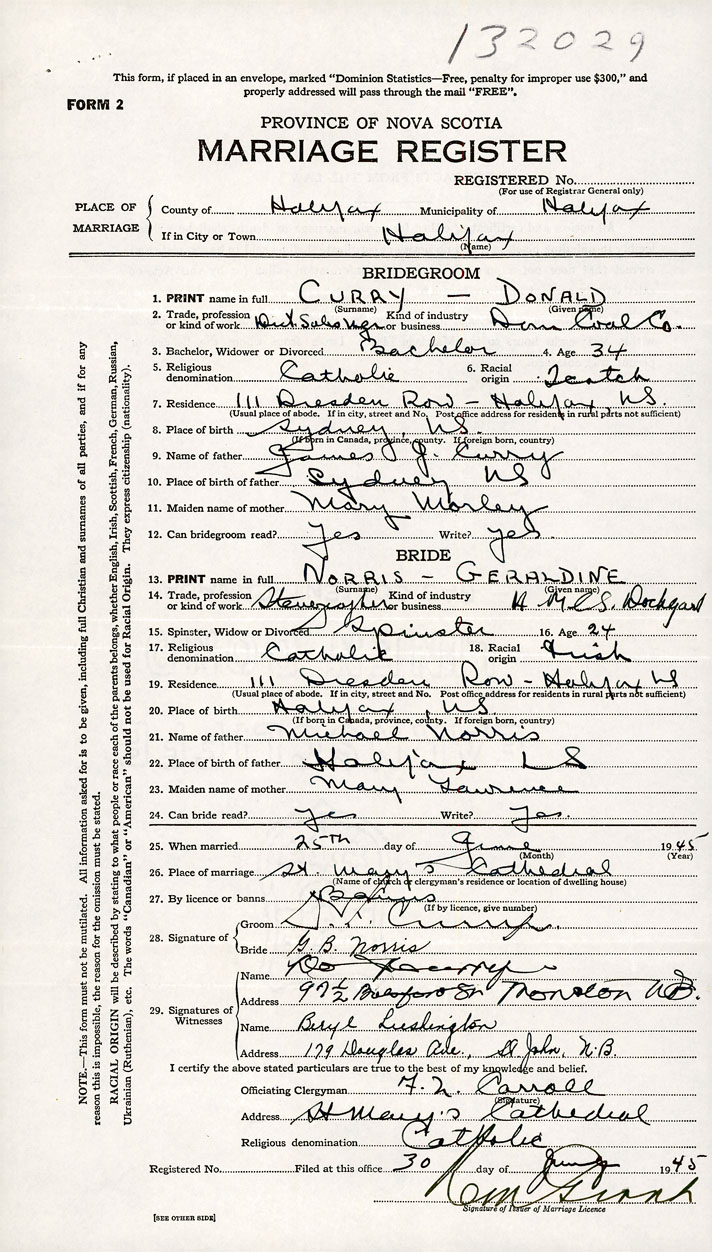 132029
This form, if placed in an envelope, marked "Dominion Statistics—Free, penalty for improper use $300," and
properly addressed will pass through the mail "FREE".
FORM 2
PROVINCE OF NOVA SCOTIA
MARRIAGE REGISTER
REGISTERED No.
(For use of Registrar General only)
PLACE OF MARRIAGE
County of Halifax Municipality of Halifax
If in City or Town Halifax
(Name)
BRIDEGROOM
1. PRINT name in full CURRY — DONALD
(Surname) (Given name)
2. Trade, profession or kind of work Dist. Sales Mgr. Kind of industry or business Dom Coal Co.
3. Bachelor, Widower or Divorced Bachelor 4. Age 34
5. Religious denomination Catholic 6. Racial origin Scotch
7. Residence 111 Dresden Row - Halifax, NS.
(Usual place of abode. If in city, street and No. Post office address for residents in rural parts not sufficient)
8. Place of birth Sydney, NS.
(If born in Canada, province, county. If foreign born, country)
9. Name of father James J. Curry
10. Place of birth of father Sydney NS
11. Maiden name of mother Mary Morley
12. Can bridegroom read? Yes Write? yes
BRIDE
13. PRINT name in full NORRIS - GERALDINE
(Surname) (Given name)
14. Trade, profession or kind of work Stenographer Kind of industry or business H.M.C.S. Dockyard
15. Spinster, Widow or Divorced Spinster 16. Age 24
17. Religious denomination Catholic 18. Racial origin Irish
19. Residence 111 Dresden Row - Halifax NS
(Usual place of abode. If in city, street and No. Post office address for residents in rural parts not sufficient)
20. Place of birth Halifax, NS
(If born in Canada, province, county. If foreign born, country)
21. Name of father Michael Norris
22. Place of birth of father Halifax NS
23. Maiden name of mother Mary Lawrence
24. Can bride read? yes Write? Yes.
25. When married 25TH day of June 1945
(Month) (Year)
26. Place of marriage St. Mary's Cathedral
(Name of church or clergyman's residence or location of dwelling house)
27. By licence or banns Banns
(If by licence, give number)
28. Signature of
Groom
Bride G. B. Norris
29. Signatures of Witnesses
Name
Address 97½ St Moncton N.B.
Name Beryl Lushington
Address 179 Douglas Ave., St John, N.B.
I certify the above stated particulars are true to the best of my knowledge and belief.
Officiating Clergyman Carroll
(Signature)
Address St Mary's Cathedral
Religious denomination Catholic
Registered No. Filed at this office 30 day of 1945
Signature of Issuer of Marriage Licence
[SEE OTHER SIDE]
NOTE.—This form must not be mutilated. All information asked for is to be given, including full Christian and surnames of all parties, and if for any
reason this is impossible, the reason for the omission must be stated.
RACIAL ORIGIN will be described by stating to what people or race each of the parents belongs, whether English, Irish, Scottish, French, German, Russian,
Ukrainian (Ruthenian), etc. The words "Canadian" or "American" should not be used for Racial Origin. They express citizenship (nationality).